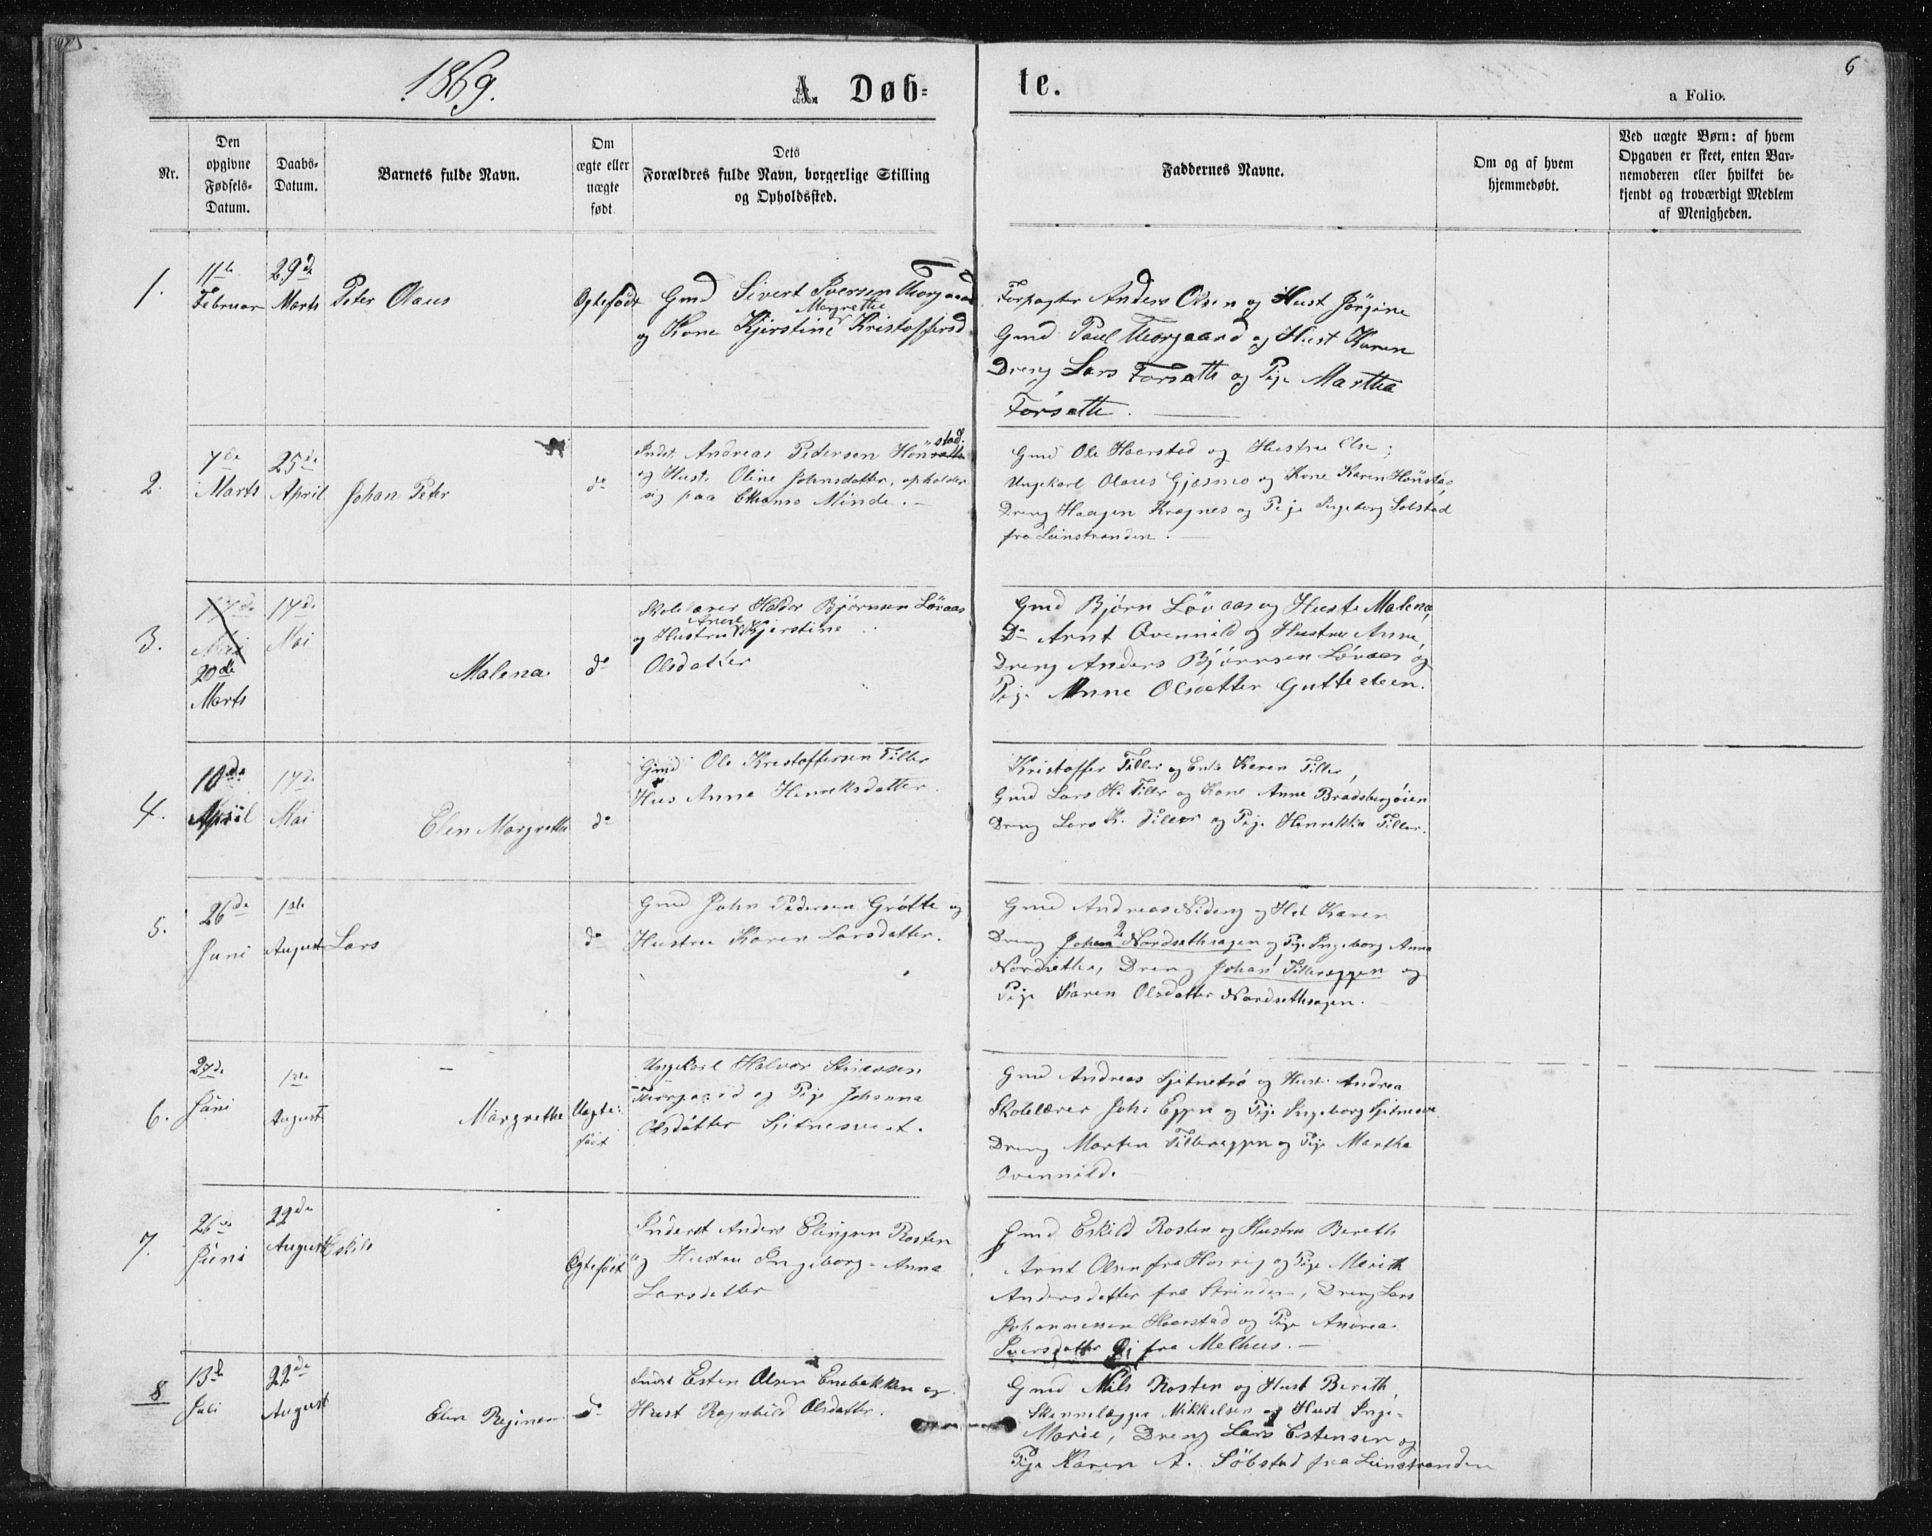 1869.
A. Døb=
te.
6
a Folio.
Nr.
Den
opgivne
Fødsels-
Datum.
Daabs-
Datum.
Barnets fulde Navn.
Om
ægte eller
uægte
født.
Dets
Forældres fulde Navn, borgerlige Stilling
og Opholdssted.
Faddernes Navne.
Om og af hvem
hjemmedøbt.
Ved uægte Børn: af hvem
Opgaven er skeet, enten Bar-
nemoderen eller hvilket be-
kjendt og troværdigt Medlem
af Menigheden.
1.
11te
Februar
29de
Marts
Peter Olaus
Egtefødt
Gmd Sivert Iversen Thorgaard
Margrethe
og Kone Kjerstine Kristoffersd
Forpagter Anders Olsen og Hust Jörgine
Gmd Paul Thorgaard og Hust Karen
Dreng Lars Forsette og Pige Martha
Forsette.
2.
7de
Marts
25de
April
Johan Peter
do
stad.
Indst. Andreas Pedersen Hön
og Hust. Oline Johnsdatter, opholder
sig paa Minde.
Gmd Ole Haarstad og Hustru Else;
Ungekarl Olaus Gjæsmo og Kone Karen Hönstad
Dreng Haagen Kragnes og Pige Ingeborg Söbstad
fra Leinstranden.
3.
17de
Mai
20de
Marts
17de
Mai
Malena
do
Skolelærer Haldor Björnsen Lövaas
Anne
og Hustru Kjerstine
Olsdatter
Gmd Björn Lövaas og Hust. Malena,
Do Arnt Ovenmild og Hustru Anne,
Dreng Anders Björnsen Lövaas og
Pige Anne Olsdatter Guttesteen.
4.
10de
April
17de
Mai
Elen Margrethe
do
Gmd Ole Kristoffersen Tiller
Hus Anne Henriksdatter.
Kristoffer Tiller og Enke Karen Tiller,
Gmd Lars H. Tiller og Kone Anne Bradsbergöien
Dreng Lars K. Tiller og Pige Henrikka Tiller.
5.
26de
Juni
1ste
August
Lars
do
Gmd John Pedersen Grötte og
Hustru Karen Larsdatter.
Gmd Andreas Nideng og Hst Karen
Dreng Johan 2 Nordsethsagen og Pige Ingeborg Anna
Nordseths, Dreng Johan 1 Tillereggen og
Pige Karen Olsdatter Nordsethsagen.
6.
27de
Juni
1ste
August
Margrethe
Uægte-
født
Ungkarl Halvor Sivertsen
Thorgaard og Pige Johanna
Olsdatter Sjetnesvest.
Gmd Andreas Sjetnetrö og Hust. Andrea
Skolelærer John Eggen og Pige Ingeborg Sjetnesve
Dreng Morten Tillereggen og Pige Martha
Ovenmild.
7.
26de
Juni
22de
August
Eskild
Egtefødt
Inderst Anders Elingsen Rosten
og Hustru Ingeborg-Anna
Larsdatter
Gmd Eskild Rosten og Hustru Bereth
Arnt Olsen fra Horrig og Pige Merith
Andersdatter fra Strinden, Dreng Lars
Johannessen Haarstad og Pige Andrea
Iversdatter Öi fra Melhus.
8
13de
Juli
22de
August
Elen Regine
do
Indst Esten Olsen Enebakken og
Hust Ragnhild Olsdatter.
Gmd Nils Rosten og Hust Bereth,
Mikkelsen og Hust Inge-
Marie, Dreng Lars Estensen og
Pige Karen A. Söbstad fra Leinstranden